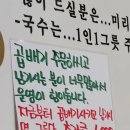 많이 드실분은...미리
-국수는...1인1그릇 주
곱배기 주문하고
남기시는 분이 너무많아서
운영이 힘듭니다.
지금부터 곱배기시키고 남기시
면